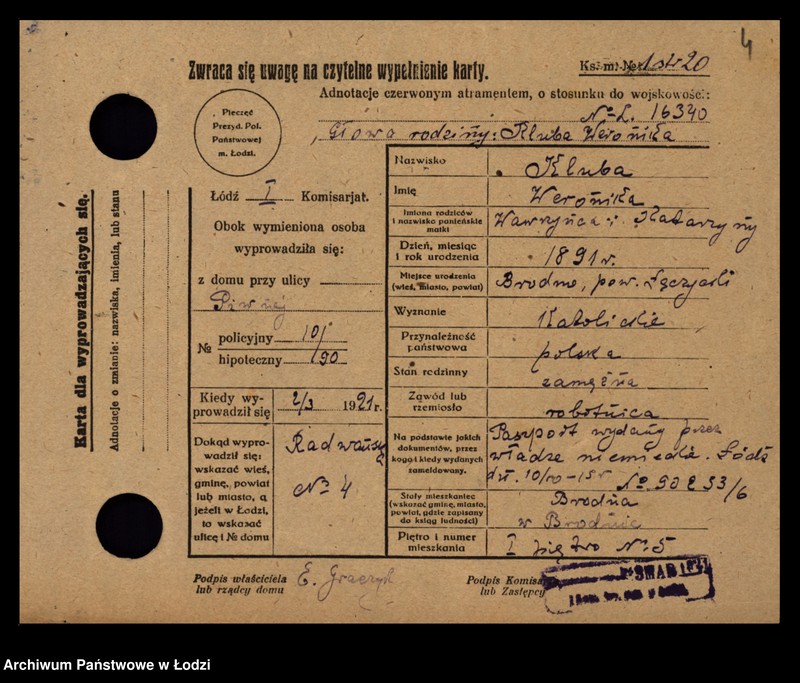 4
Zwraca się uwagę na czytelne wypełnienie karty.
Ks. m. № 1 str 20
Adnotacje czerwonym atramentem, o stosunku do wojskowości:
№ L. 16340
Głowa rodziny: Kluba Weronika
Pieczęć
Prezyd. Pol.
Państwowej
m. Łodzi.
Karta dla wyprowadzających się.
Adnotacje o zmianie: nazwiska, imienia, lub stanu
Łódź I Komisarjat.
Obok wymieniona osoba
wyprowadziła się:
z domu przy ulicy
Piwnej
№ policyjny 10
hipoteczny 190
Kiedy wyprowadził się 2/3 1921 r.
Dokąd wyprowadził się:
wskazać wieś,
gminę, powiat
lub miasto, a
jeżeli w Łodzi,
to wskazać
ulicę i № domu
Radwańska
№ 4
Nazwisko Kluba
Imię Weronika
Imiona rodziców
i nazwisko panieńskie
matki
Wawrzyńca i Katarzyny
Dzień, miesiąc
i rok urodzenia
1891 r.
Miejsce urodzenia
(wieś, miasto, powiat)
Brodno, pow. Łęczycki
Wyznanie Katolickie
Przynależność
państwowa
polska
Stan rodzinny zamężna
Zawód lub
rzemiosło
robotnica
Na podstawie jakich
dokumentów, przez
kogo i kiedy wydanych
zameldowany.
Paszport wydany przez
władze niemieckie. Łódź
dn. 10/10-15 r № 90233/6
Stały mieszkaniec
(wskazać gminę, miasto,
powiat, gdzie zapisany
do ksiąg ludności)
Brodnia
w Brodnie
Piętro i numer
mieszkania
I piętro № 5
Podpis właściciela
lub rządcy domu
E. Graczyk
Podpis Komisa
lub Zastępcy
Archiwum Państwowe w Łodzi